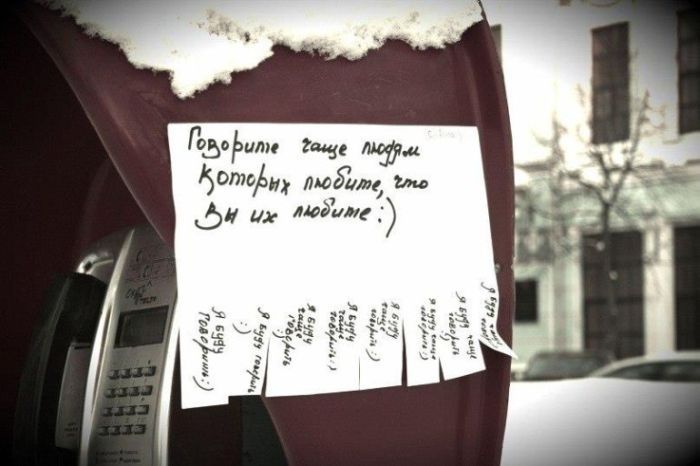 Говорите чаще людям
которых любите, что
Вы их любите :)
Я буду
говорить :)
Я буду говорить
:)
Я буду
чаще
говорить
:)
Я буду
чаще
говорить :)
Я буду
чаще
говорить :)
Я буду чаще
говорить :)
Я буду чаще
говорить
:)
Я буду чаще